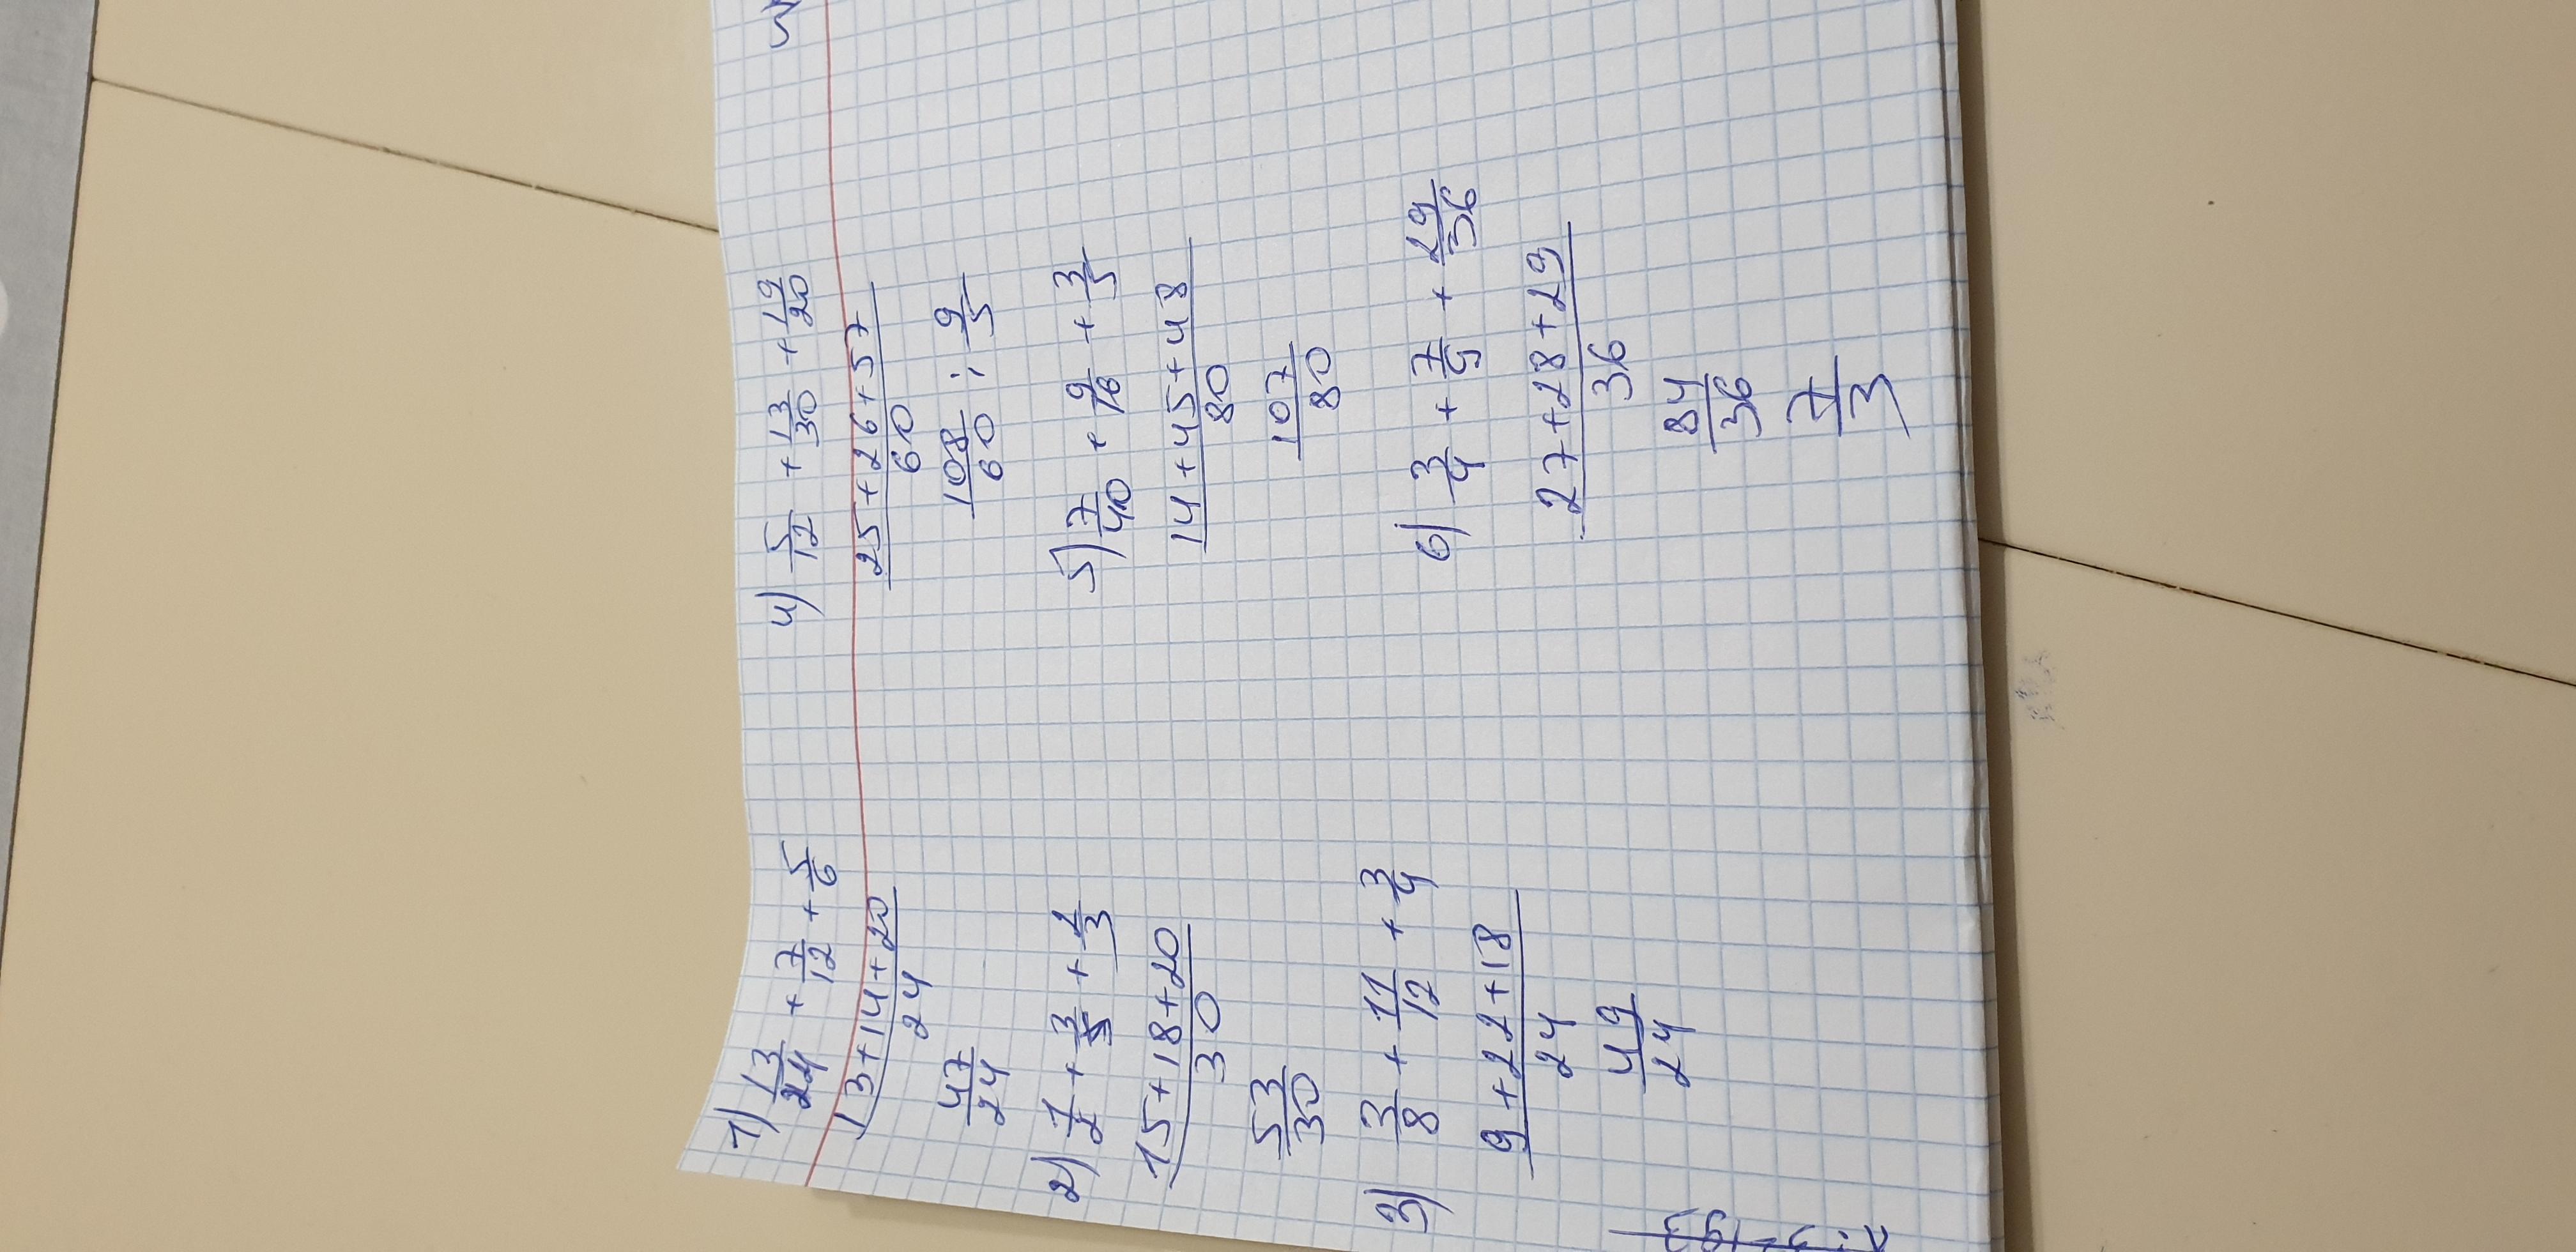 1) 13/24 + 7/12 + 5/6
13+14+20/24
47/24
2) 1/2 + 3/5 + 2/3
15+18+20/30
53/30
3) 3/8 + 11/12 + 3/4
9+22+18/24
49/24
4) 5/12 + 13/30 + 19/20
25+26+57/60
108/60 ; 9/5
5) 7/40 + 9/16 + 3/5
14+45+48/80
107/80
6) 3/4 + 7/9 + 29/36
27+28+29/36
84/36
7/3